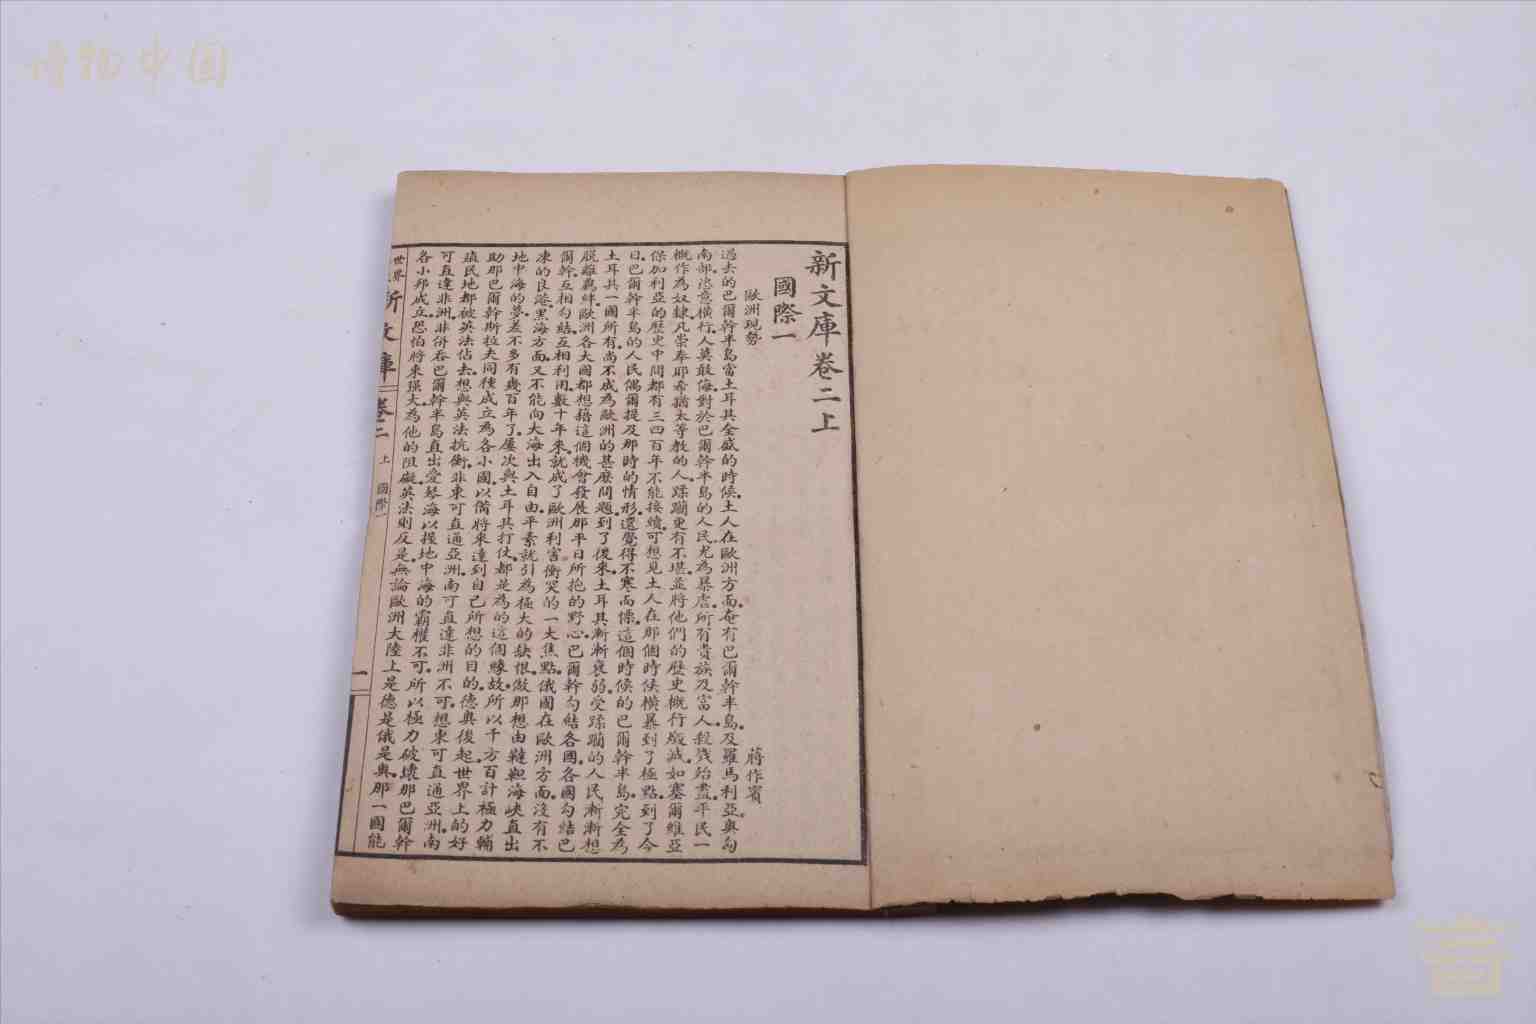 博物中国
新文庫卷二上
國際一
歐洲現勢
蔣作賓
過去的巴爾幹半島當土耳其全盛的時候土人在歐洲方面奄有巴爾幹半島及羅馬利亞與匈
南部恣意橫行人莫敢侮對於巴爾幹半島的人民尤為暴虐所有貴族及富人殺戮殆盡平民一
概作為奴隸凡崇奉耶希猶太等教的人蹂躪更有不堪並將他們的歷史概行毀滅如塞爾維亞
保加利亞的歷史中間都有三四百年不能接續可想見土人在那個時候橫暴到了極點到了今
日巴爾幹半島的人民偶爾提及那時的情形還覺得不寒而慄這個時候的巴爾幹半島完全為
土耳其一國所有尚不成為歐洲的甚麼問題到了後來土耳其漸漸衰弱受蹂躪的人民漸漸想
脫離羈絆歐洲各大國都想藉這個機會發展那平日所抱的野心巴爾幹勾結各國各國勾結巴
爾幹互相勾結互相利用數十年來就成了歐洲利害衝突的一大焦點俄國在歐洲方面沒有不
凍的良港黑海方面又不能向大海出入自由平素就引為極大的缺恨做那想由韃靼海峽直出
地中海的夢差不多有幾百年了屢次與土耳其打仗都是為的這個緣故所以千方百計極力輔
助那巴爾幹斯拉夫同種成立為各小國以備將來達到自己所想的目的德奧後起世界上的好
殖民地都被英法佔去想與英法抗衡非東可直通亞洲南可直達非洲不可想東可直通亞洲南
可直達非洲非併吞巴爾幹半島直出愛琴海以握地中海的霸權不可所以極力破壞那巴爾幹
各小邦成立恐怕將來强大為他的阻礙英法則反是無論歐洲大陸上是德是俄是奧那一國能
世界新文庫 卷二 上 國際一 一